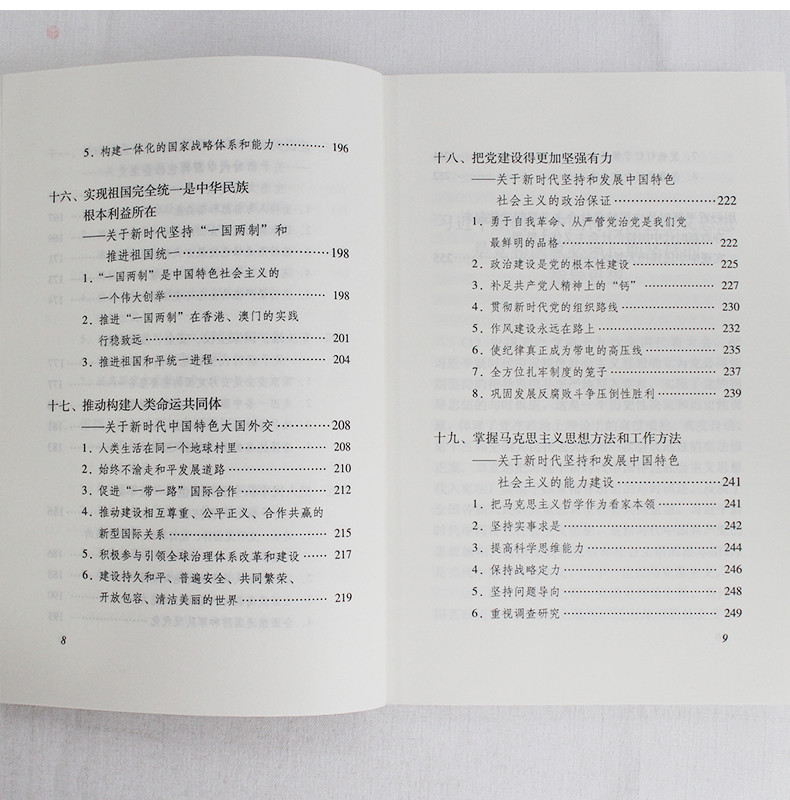 5．构建一体化的国家战略体系和能力………… 196
十六、实现祖国完全统一是中华民族
根本利益所在
——关于新时代坚持“一国两制”和
推进祖国统一………………………… 198
1．“一国两制”是中国特色社会主义的
一个伟大创举………………………… 198
2．推进“一国两制”在香港、澳门的实践
行稳致远……………………………… 201
3．推进祖国和平统一进程……………… 204
十七、推动构建人类命运共同体
——关于新时代中国特色大国外交……… 208
1．人类生活在同一个地球村里………… 208
2．始终不渝走和平发展道路…………… 210
3．促进“一带一路”国际合作………… 212
4．推动建设相互尊重、公平正义、合作共赢的
新型国际关系………………………… 215
5．积极参与引领全球治理体系改革和建设…… 217
6．建设持久和平、普遍安全、共同繁荣、
开放包容、清洁美丽的世界………… 219
8
十八、把党建设得更加坚强有力
——关于新时代坚持和发展中国特色
社会主义的政治保证………………… 222
1．勇于自我革命、从严管党治党是我们党
最鲜明的品格………………………… 222
2．政治建设是党的根本性建设………… 225
3．补足共产党人精神上的“钙”……… 227
4．贯彻新时代党的组织路线…………… 230
5．作风建设永远在路上………………… 232
6．使纪律真正成为带电的高压线……… 235
7．全方位扎牢制度的笼子……………… 237
8．巩固发展反腐败斗争压倒性胜利…… 239
十九、掌握马克思主义思想方法和工作方法
——关于新时代坚持和发展中国特色
社会主义的能力建设………………… 241
1．把马克思主义哲学作为看家本领…… 241
2．坚持实事求是………………………… 242
3．提高科学思维能力…………………… 244
4．保持战略定力………………………… 246
5．坚持问题导向………………………… 248
6．重视调查研究………………………… 249
9